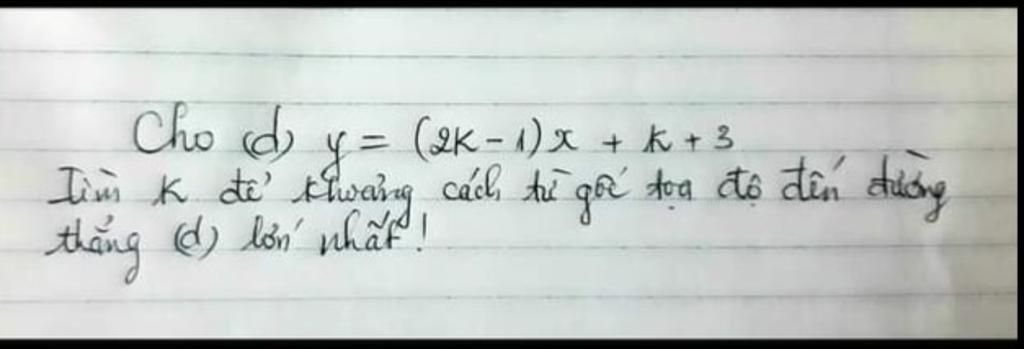 Cho (d) y = (2K - 1)x + K + 3
Tìm K để khoảng cách từ gốc tọa độ đến đường
thẳng (d) lớn nhất!